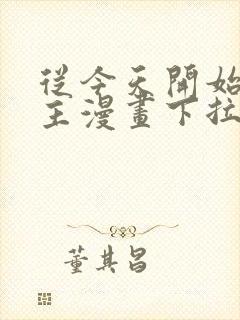 從今天開始
主漫畫下拉
董其昌